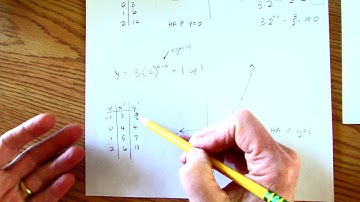 0 3
1 6
2 12
HA @ y=0
3·2⁻¹
3·2⁻ = 3/2 ⇒ 0
right 4
y = 3(2)ˣ⁻⁴ + 1 up 1
x x' y'
-1 3
0 4 4
1 5 7
2 6 13
HA @ y=1